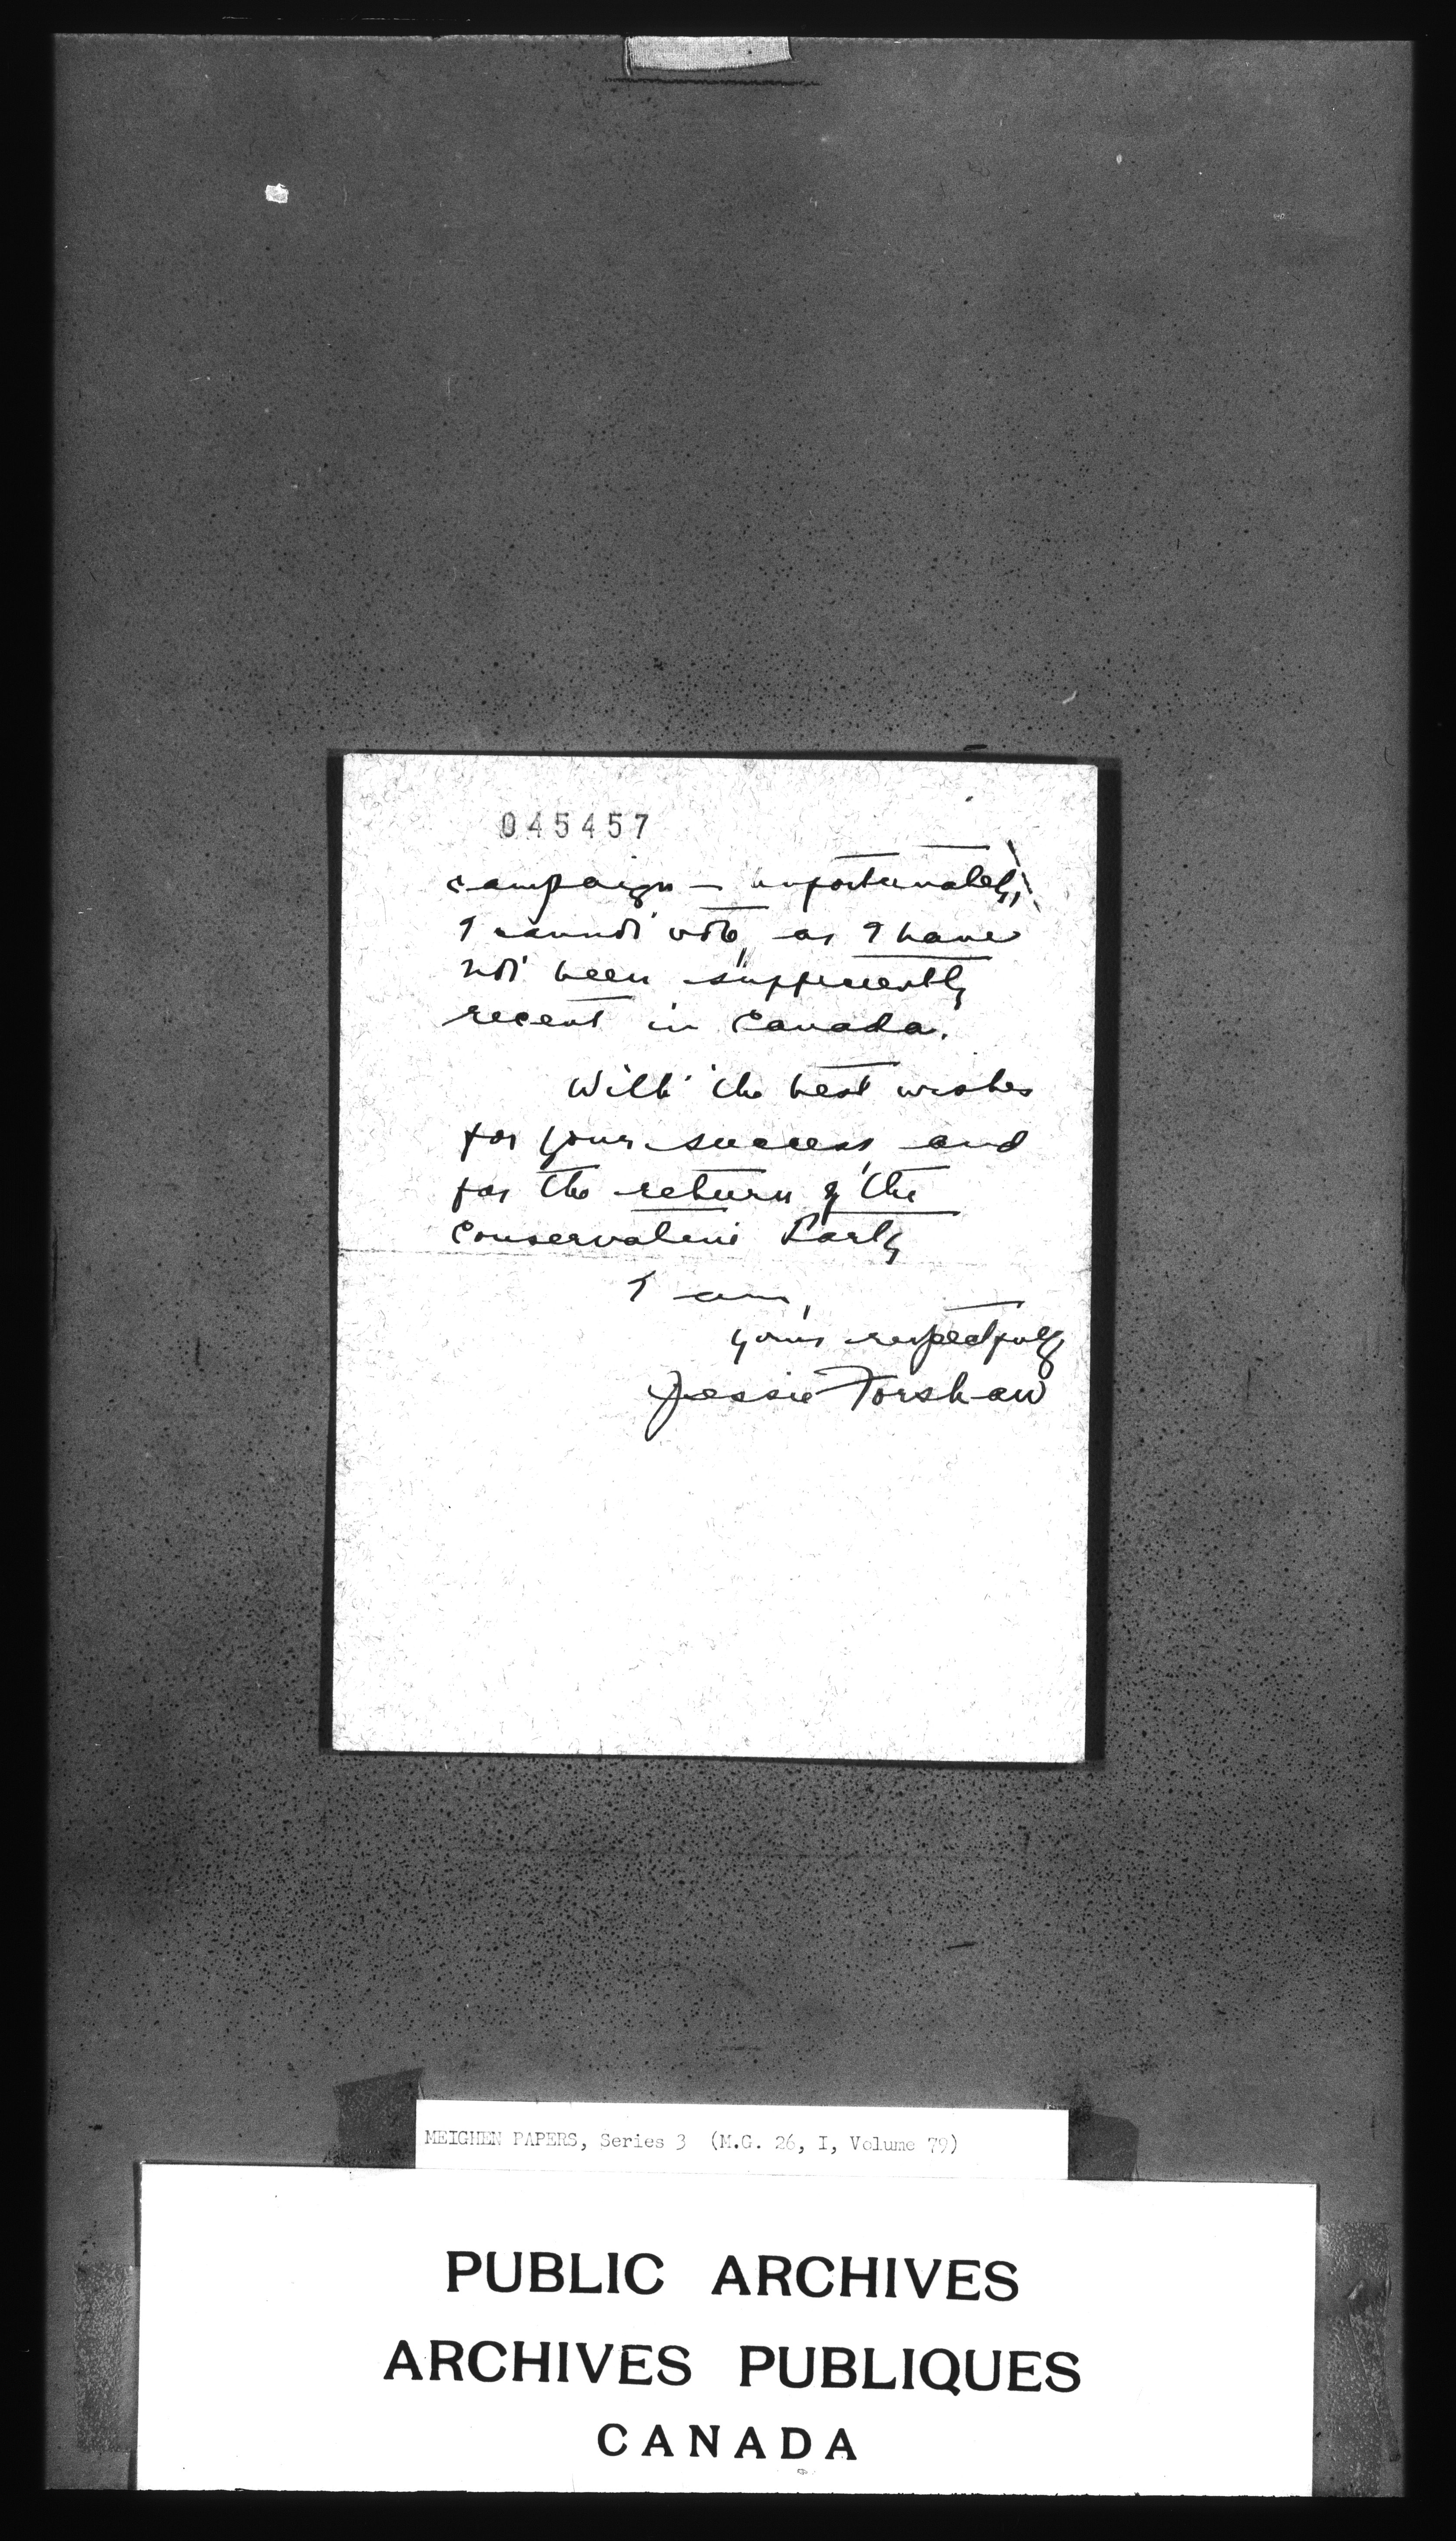 045457
campaign — unfortunately,
I cannot vote, as I have
not been sufficiently
recent in Canada.
With the best wishes
for your success, and
for the return of the
Conservative Party
I am,
yours respectfully
Jessie Forshaw
MEIGHEN PAPERS, Series 3 (M.G. 26, I, Volume 79)
PUBLIC ARCHIVES
ARCHIVES PUBLIQUES
CANADA